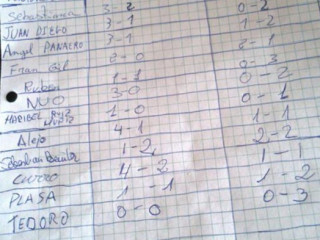 Sebastian 3-2 0-2
JUAN DIEGO 3-1 1-2
Angel PANACRO 3-1 2-1
Fran Gil 2-0 0-3
Ruben 1-1 0-2
NUO 3-0 0-1
MARIBOL 1-0 1-1
Alejo 4-1 2-2
Sebastian 1-2 1-1
CURRO 4-2 1-2
PLASA 1-1 0-3
TEODORO 0-0